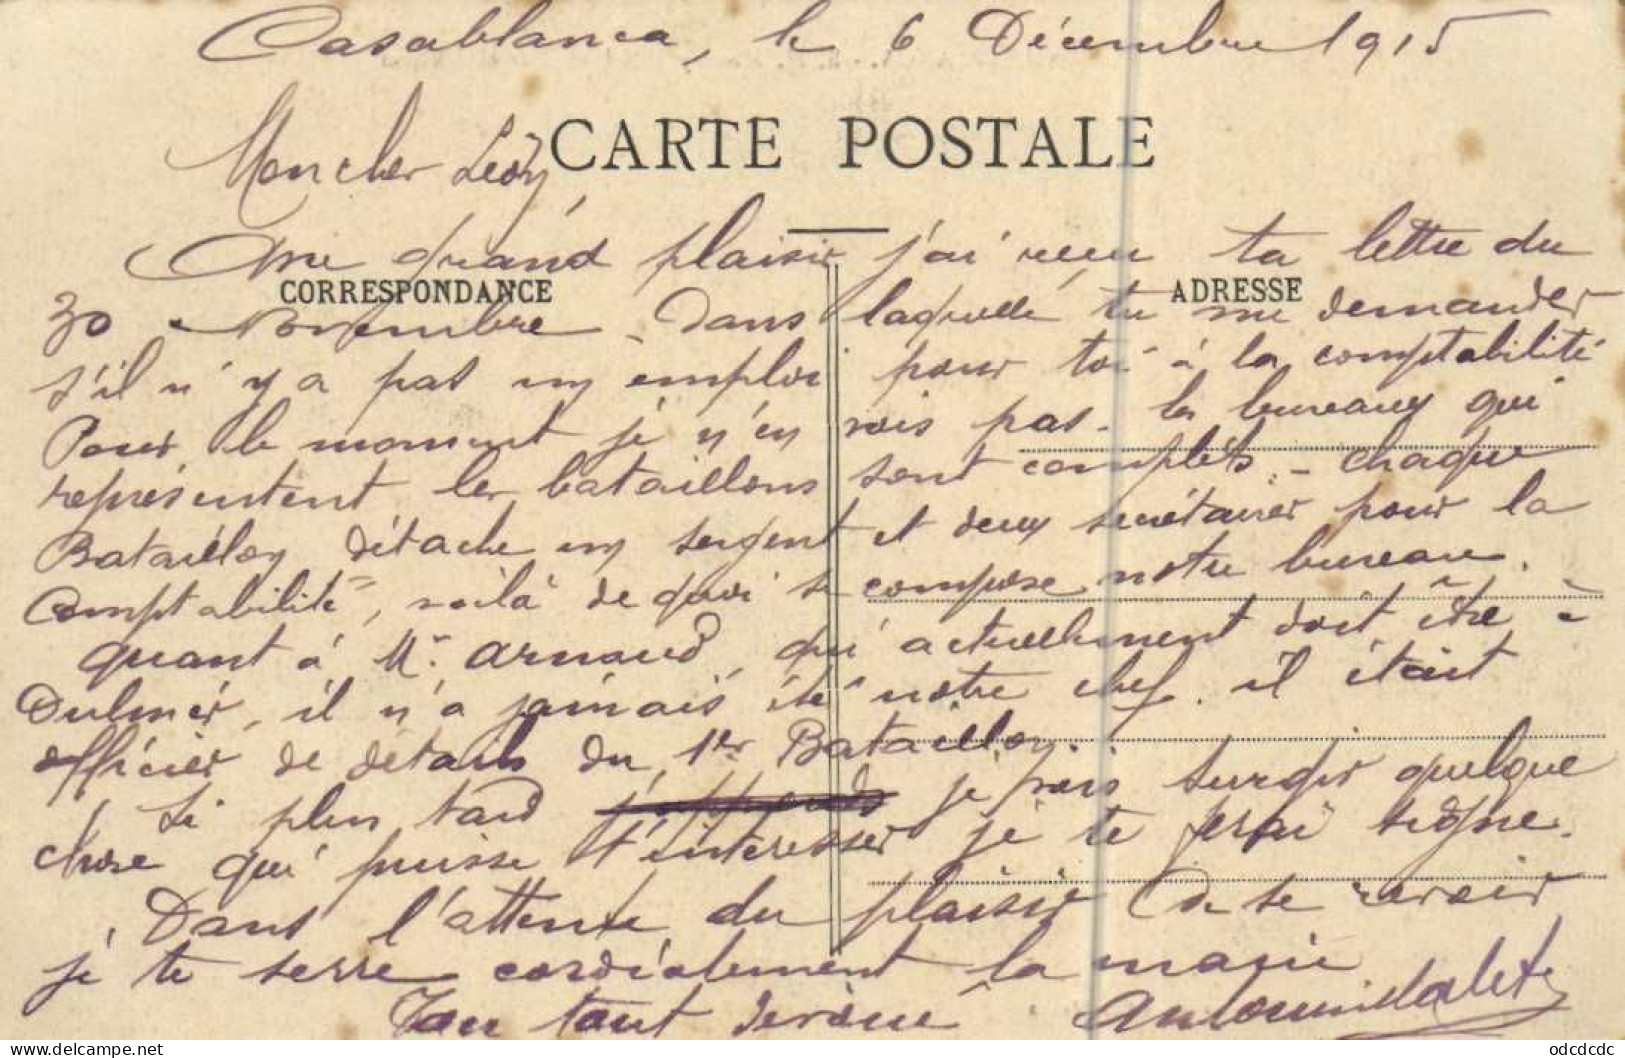 Casablanca, le 6 Décembre 1915
CARTE POSTALE
Mon cher Léon,
Avec grand plaisir j'ai reçu ta lettre du
CORRESPONDANCE
ADRESSE
30 Novembre dans laquelle tu me demandes
s'il n'y a pas un emploi pour toi à la comptabilité
Pour le moment je n'en vois pas. les bureaux qui
représentent les bataillons sont complets. - chaque
Bataillon détache un sergent et deux secrétaires pour la
Comptabilité, voilà de quoi se compose notre bureau.
quant à Mr. Arnaud, qui actuellement doit être à
il n'a jamais été notre chef. il était
officier de détails du 1er Bataillon.
Si plus tard je vois surgir quelque
chose qui puisse t'intéresser je te ferai signe.
Dans l'attente du plaisir de se revoir
je te serre cordialement la main
Ton tout
odcdcdc